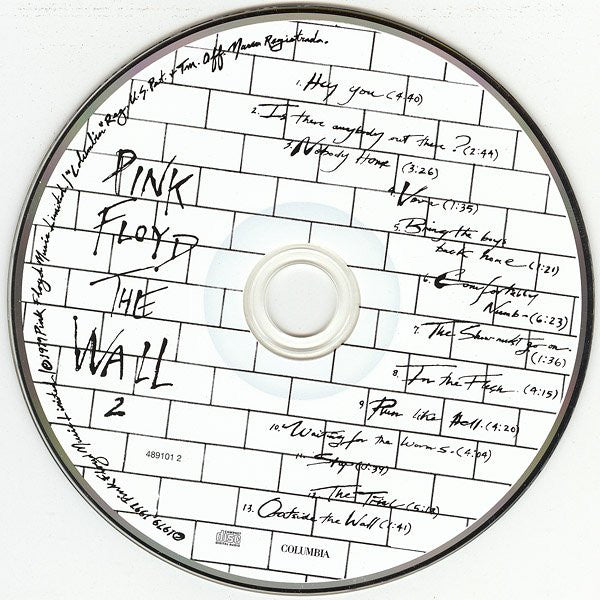 "Columbia" Reg. U.S. Pat. & Tm. Off. Marca Registrada.
©1979, 1997 Pink Floyd Music Limited/℗1979 Pink Floyd Music Limited/
PINK
FLOYD
THE
WALL
2
489101 2
1. Hey you (4:40)
2. Is there anybody out there? (2:44)
3. Nobody Home (3:26)
4. Vera (1:35)
5. Bring the boys
back home (1:21)
6. Comfortably
Numb - (6:23)
7. The Show must go on.
(1:36)
8. In the Flesh. (4:15)
9. Run like Hell. (4:20)
10. Waiting for the worms. (4:04)
11. Stop (0:39)
12. The Trial (5:13)
13. Outside the Wall (1:41)
COMPACT
disc
DIGITAL AUDIO
COLUMBIA